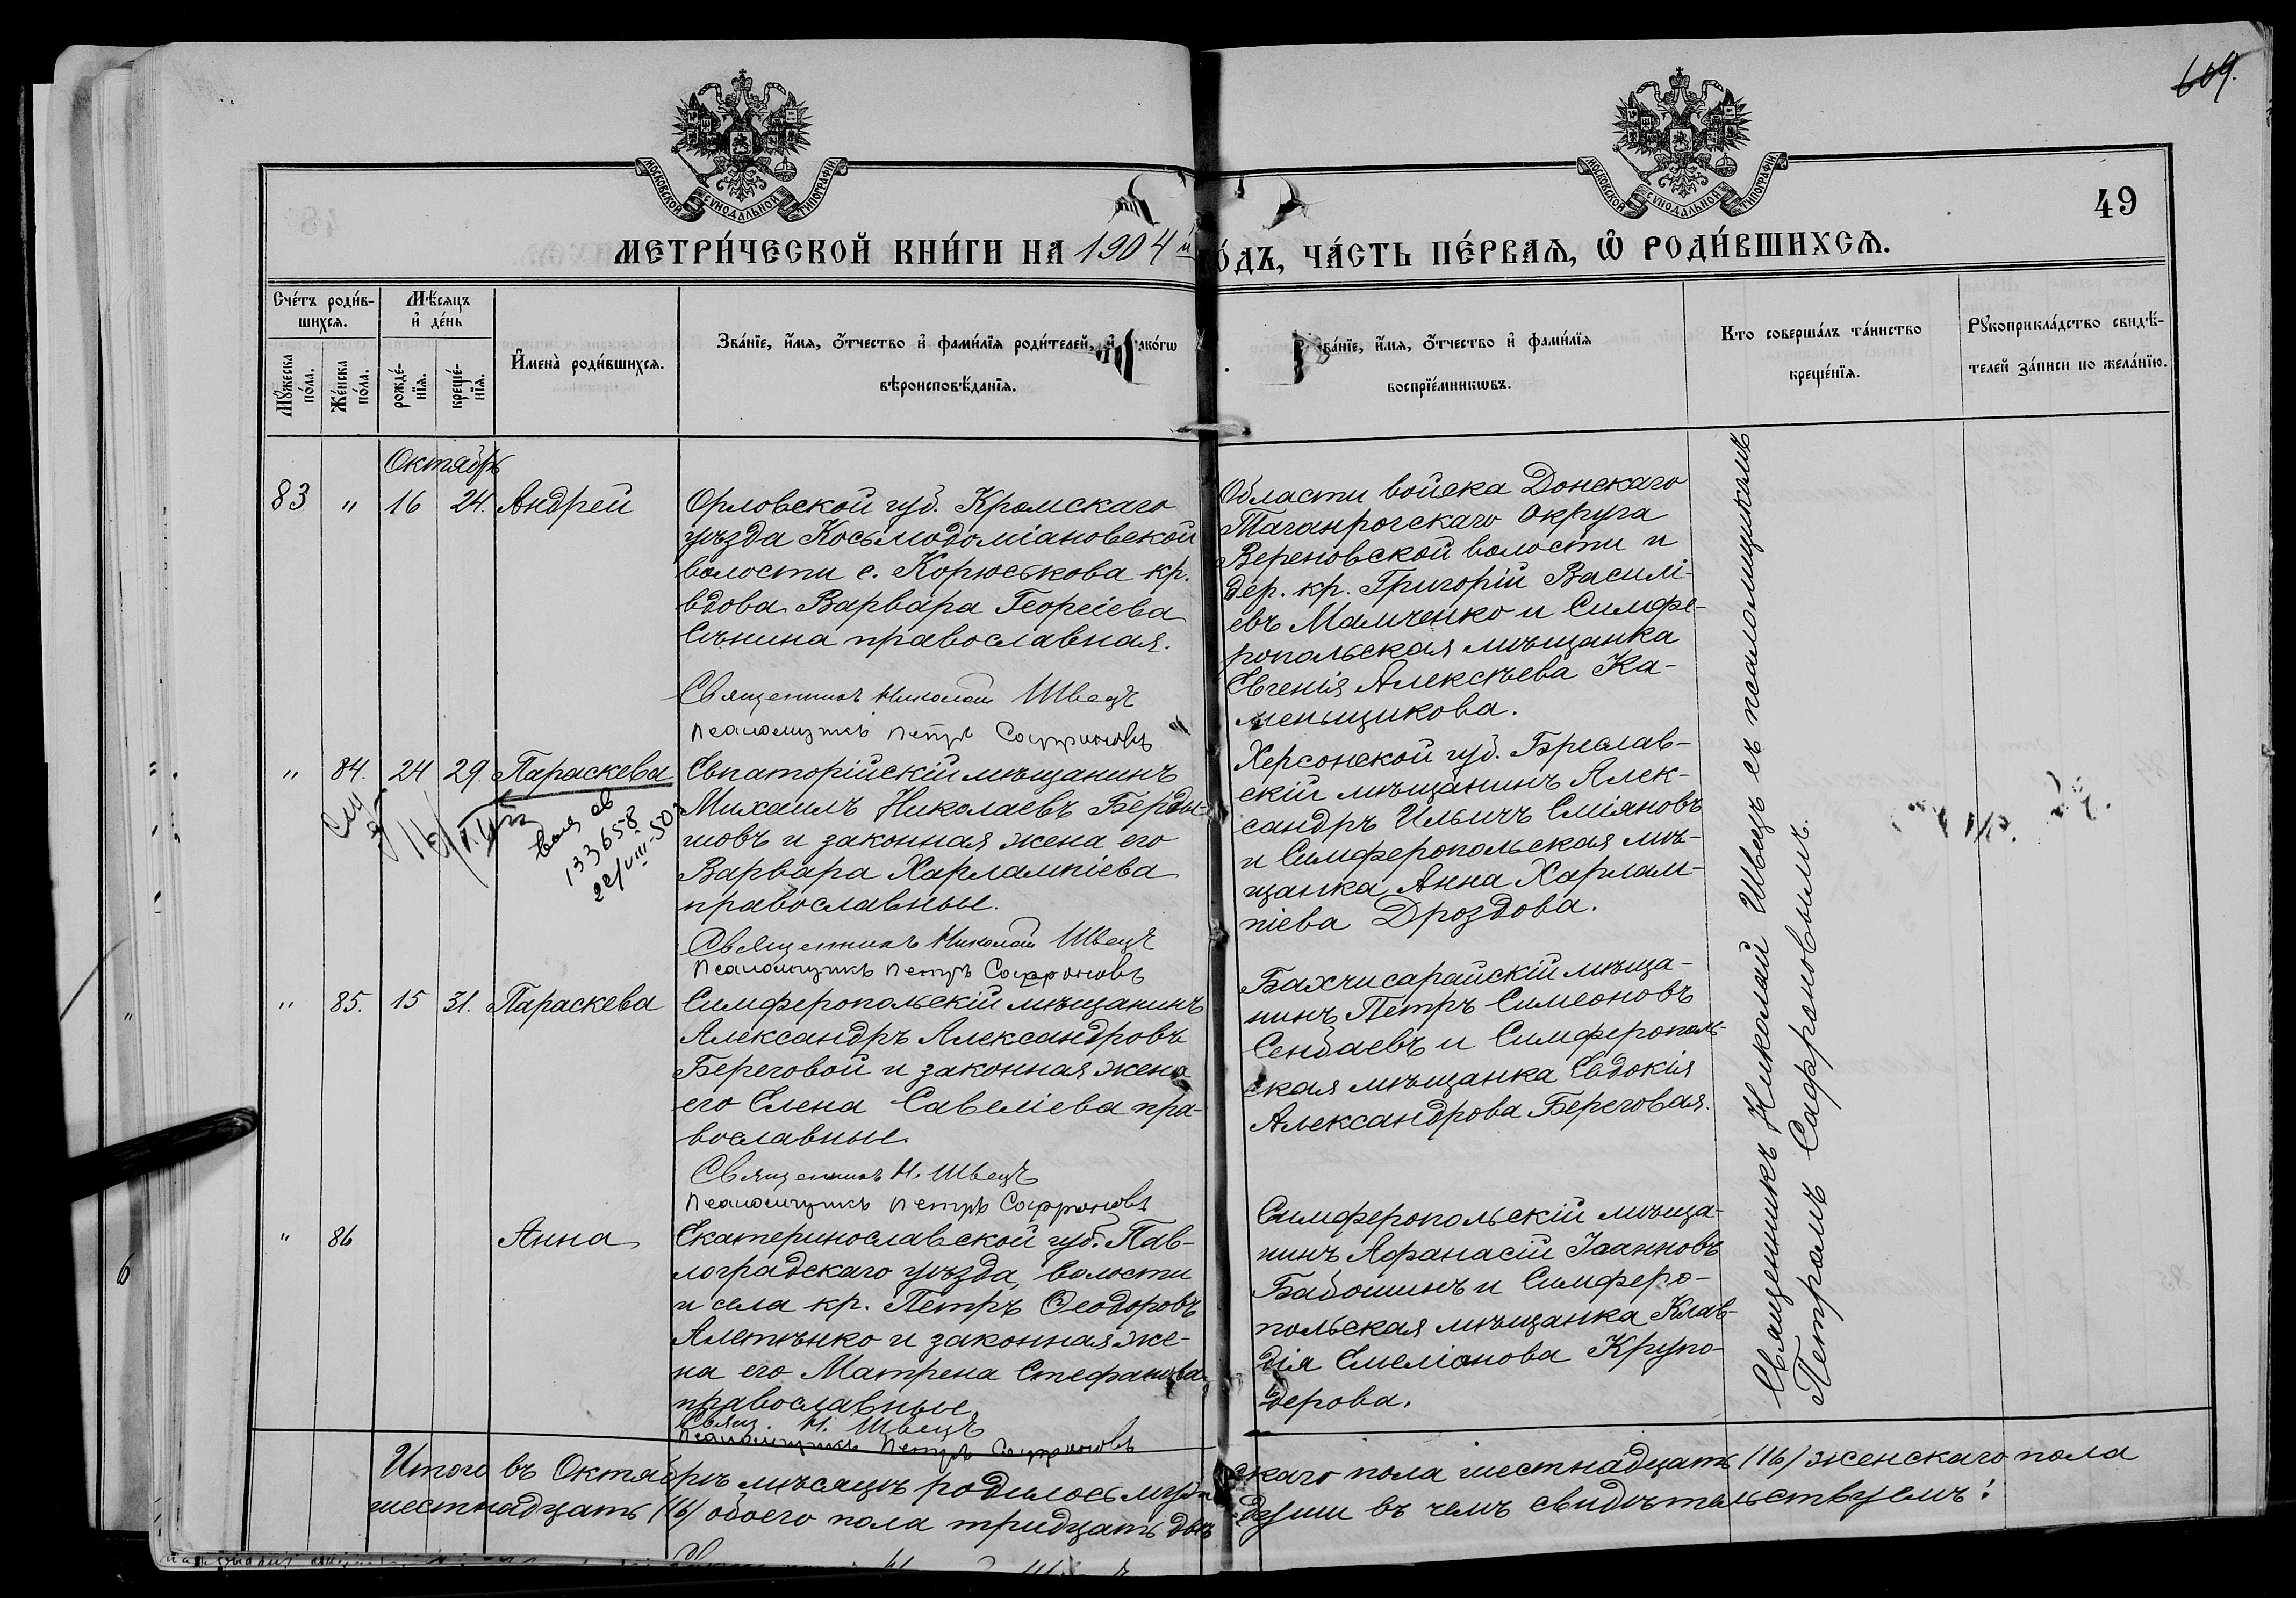 609.
49
МОСКОВСКОЙ СѴНОДАЛЬНОЙ ТИПОГРАФІИ
МОСКОВСКОЙ СѴНОДАЛЬНОЙ ТИПОГРАФІИ
МЕТРИ́ЧЕСКОЙ КНИ́ГИ НА 1904й
О́ДЪ, ЧА́СТЬ ПЕ́РВАѦ, Ѽ РОДИ́ВШИХСѦ.
Сче́тъ роди́в-
шихсѧ.
Мѣ́сѧцъ
и҆ де́нь
Мꙋ́жеска по́ла.
Же́нска по́ла.
рожде́-
нїѧ.
креще́-
нїѧ.
И҆мена̀ роди́вшихсѧ.
Зва́нїе, и҆́мѧ, ѻ҆́тчество и҆ фами́лїѧ роди́телей, и҆ како́гѡ
вѣроисповѣ́данїѧ.
Зва́нїе, и҆́мѧ, ѻ҆́тчество и҆ фами́лїѧ
воспрїе́мникѡвъ.
Кто̀ соверша́лъ та́инство
креще́нїѧ.
Рꙋкоприкла́дство свидѣ́-
телей за́писи по жела́нїю.
Октябрь
83 " 16 24. Андрей
Орловской губ. Кромскаго
уѣзда Косьмодоміановской
волости с. Корюськова кр.
вдова Варвара Георгіева
Сѣнина православная.
Священникъ Николай Швецъ
Псаломщикъ Петръ Сафроновъ
Области войска Донскаго
Таганрогскаго округа
Вереновской волости и
дер. кр. Григорій Василі-
евъ Мамченко и Симфе-
ропольская мѣщанка
Евгенія Алексѣева Ка-
меньщикова.
" 84. 24 29. Параскева
133658
Евпаторійскій мѣщанинъ
Михаилъ Николаевъ Берды-
шовъ и законная жена его
Варвара Харлампіева
православные.
Священникъ Николай Швецъ
Псаломщикъ Петръ Сафроновъ
Херсонской губ. Бреслав-
скій мѣщанинъ Алек-
сандръ Ильичъ Сміяновъ
и Симферопольская мѣ-
щанка Анна Харлам-
піева Дроздова.
" 85. 15 31. Параскева
Симферопольскій мѣщанинъ
Александръ Александровъ
Береговой и законная жена
его Елена Савеліева пра-
вославные.
Священникъ Н. Швецъ
Псаломщикъ Петръ Сафроновъ
Бахчисарайскій мѣща-
нинъ Петръ Симеоновъ
Сенбаевъ и Симферополь-
ская мѣщанка Евдокія
Александрова Береговая.
" 86 Анна
Екатеринославской губ. Пав-
лоградскаго уѣзда, волости
и села кр. Петръ Ѳеодоровъ
Алетѣнко и законная же-
на его Матрена Стефанова
православные.
Свящ. Н. Швецъ
Псаломщикъ Петръ Сафроновъ
Симферопольскій мѣща-
нинъ Афанасій Іоанновъ
Бабошинъ и Симферо-
польская мѣщанка Клав-
дія Емеліанова Крупо-
дерова.
Священникъ Николай Швецъ съ псаломщикомъ
Петромъ Сафроновымъ.
Итого въ Октябрѣ мѣсяцѣ родилось мужескаго пола шестнадцать (16) женскаго пола
шестнадцать (16) обоего пола тридцать двѣ души въ чемъ свидѣтельствуемъ: